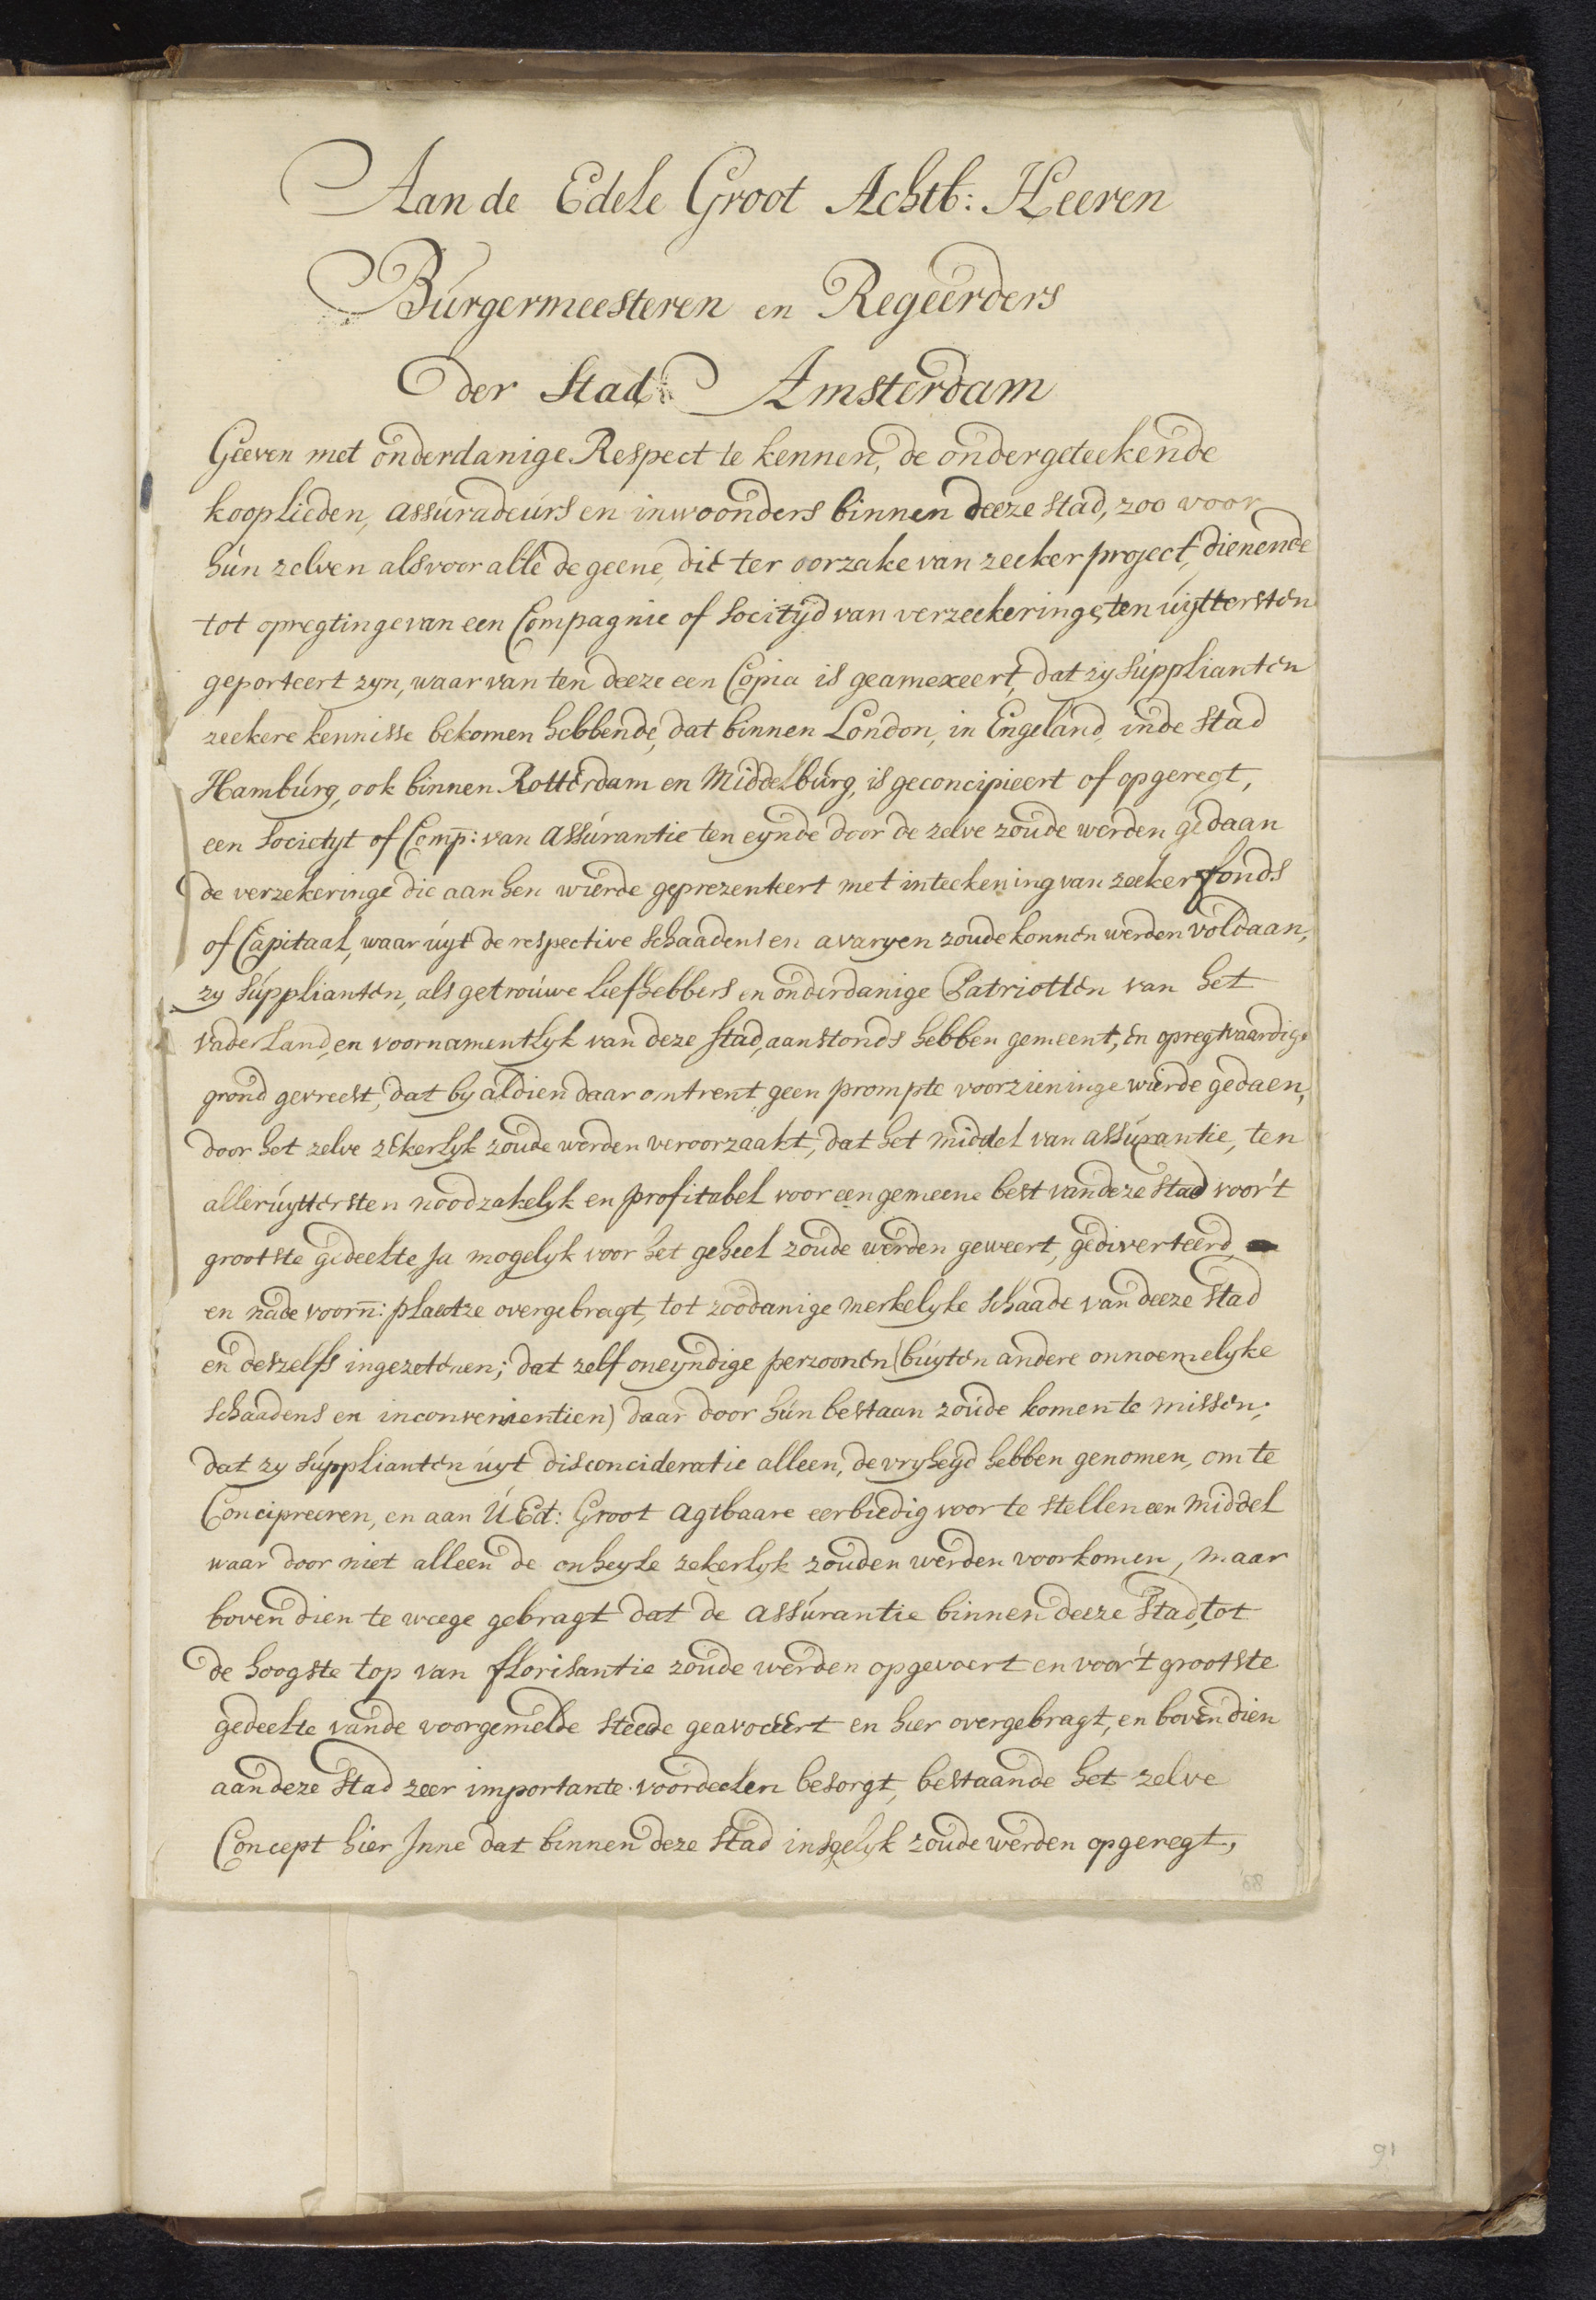 Aan de Edele Groot Achtb: Heeren
Búrgermeesteren en Regeerders
der Stad Amsterdam
Geeven met onderdanige Respect te kennen, de ondergeteekende
kooplieden, assúradeúrs en inwoonders binnen deeze stad, zoo voor
hún zelven als voor alle de geene, die ter oorzake van zeeker project, dienende
tot opregtinge van een Compagnie of Socitijd van verzeekeringe, ten úijttersten
geporteert zyn, waar van ten deeze een Copia is geannexeert, dat zij súpplianten
zeekere kennisse bekomen hebbende, dat binnen London, in Engeland, inde stad
Hambúrg, ook binnen Rotterdam en Middelbúrg, is geconcipieert of opgeregt,
een Societyt of Comp: van assúrantie ten eynde door de zelve zoude werden gedaan
de verzekeringe die aan hen wierde geprezenteert met inteekening van zeeker fonds
of Capitaal, waar úyt de respective schaadens en avaryen zoude konnen werden voldaan,
zy súpplianten, als getroúwe liefhebbers en onderdanige Patriotten van het
vaderland, en voornamentlyk van deze stad, aanstonds hebben gemeent, en opregtvaardige
grond gevreest, dat by aldien daar omtrent geen prompte voorzieninge wierde gedaen,
door het zelve zekerlyk zoude werden veroorzaakt, dat het middel van assúrantie, ten
allerúyttersten noodzakelyk en profitabel voor een gemeene best van deze Stad voor't
grootste gedeelte Ja mogelyk voor het geheel zoude werden geweert, gediverteerd,
en nade voorn: plaatze overgebragt, tot zoodanige merkelyke schaade van deeze Stad
en deszelfs ingezetenen; dat zelf oneyndige perzoonen (búyten andere onnoemelyke
schaadens en inconvenientien) daar door hún bestaan zoúde komen te missen;
dat zy súpplianten úyt disconcideratie alleen, de vryheyd hebben genomen, om te
Concipieeren, en aan Ú Ed: Groot agtbaare eerbiedig voor te stellen een middel
waar door niet alleen de onheyle zekerlyk zouden werden voorkomen, maar
boven dien te weege gebragt dat de assúrantie binnen deeze Stad, tot
de hoogste top van florisantie zoude werden opgevoert en voor't grootste
gedeelte vande voorgemelde steede geavoceert en hier overgebragt, en boven dien
aan deze Stad zeer importante voordeelen besorgt, bestaande het zelve
Concept hier Inne dat binnen deze stad insgelyk zoude werden opgeregt,
68
91